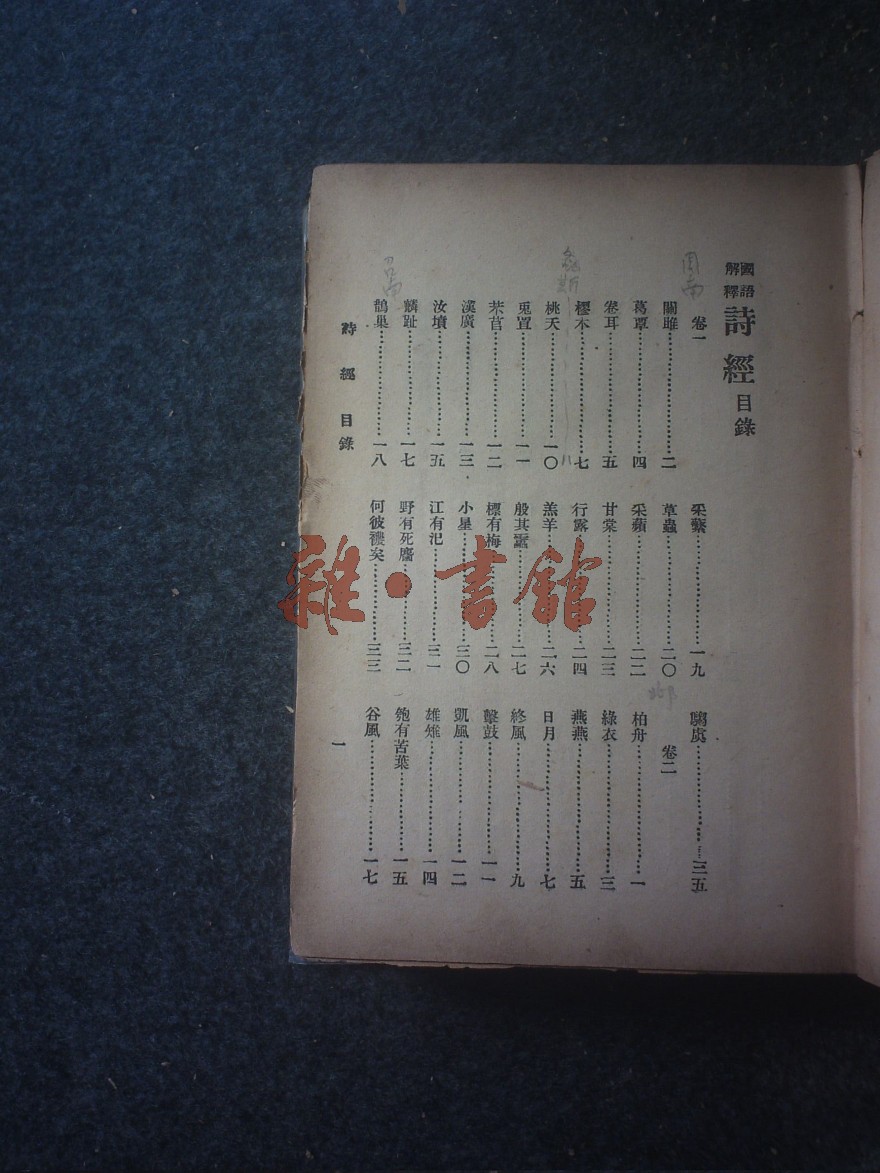 國語解釋詩經目錄
周南
卷一
關雎……二
葛覃……四
卷耳……五
樛木……七
螽斯……八
桃夭……一〇
兎罝……一一
芣苢……一二
漢廣……一三
汝墳……一五
麟趾……一七
召南
鵲巢……一八
采蘩……一九
草蟲……二〇
采蘋……二二
甘棠……二三
行露……二四
羔羊……二六
殷其靁……二七
摽有梅……二八
小星……三〇
江有汜……三一
野有死麕……三二
何彼襛矣……三三
騶虞……三五
邶
卷二
柏舟……一
綠衣……三
燕燕……五
日月……七
終風……九
擊鼓……一一
凱風……一二
雄雉……一四
匏有苦葉……一五
谷風……一七
詩經目錄
一
雜·書館